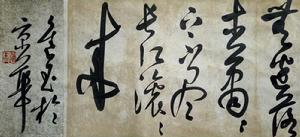 無邊落
木蕭蕭
下不盡
長江滾滾
來
書於
京華